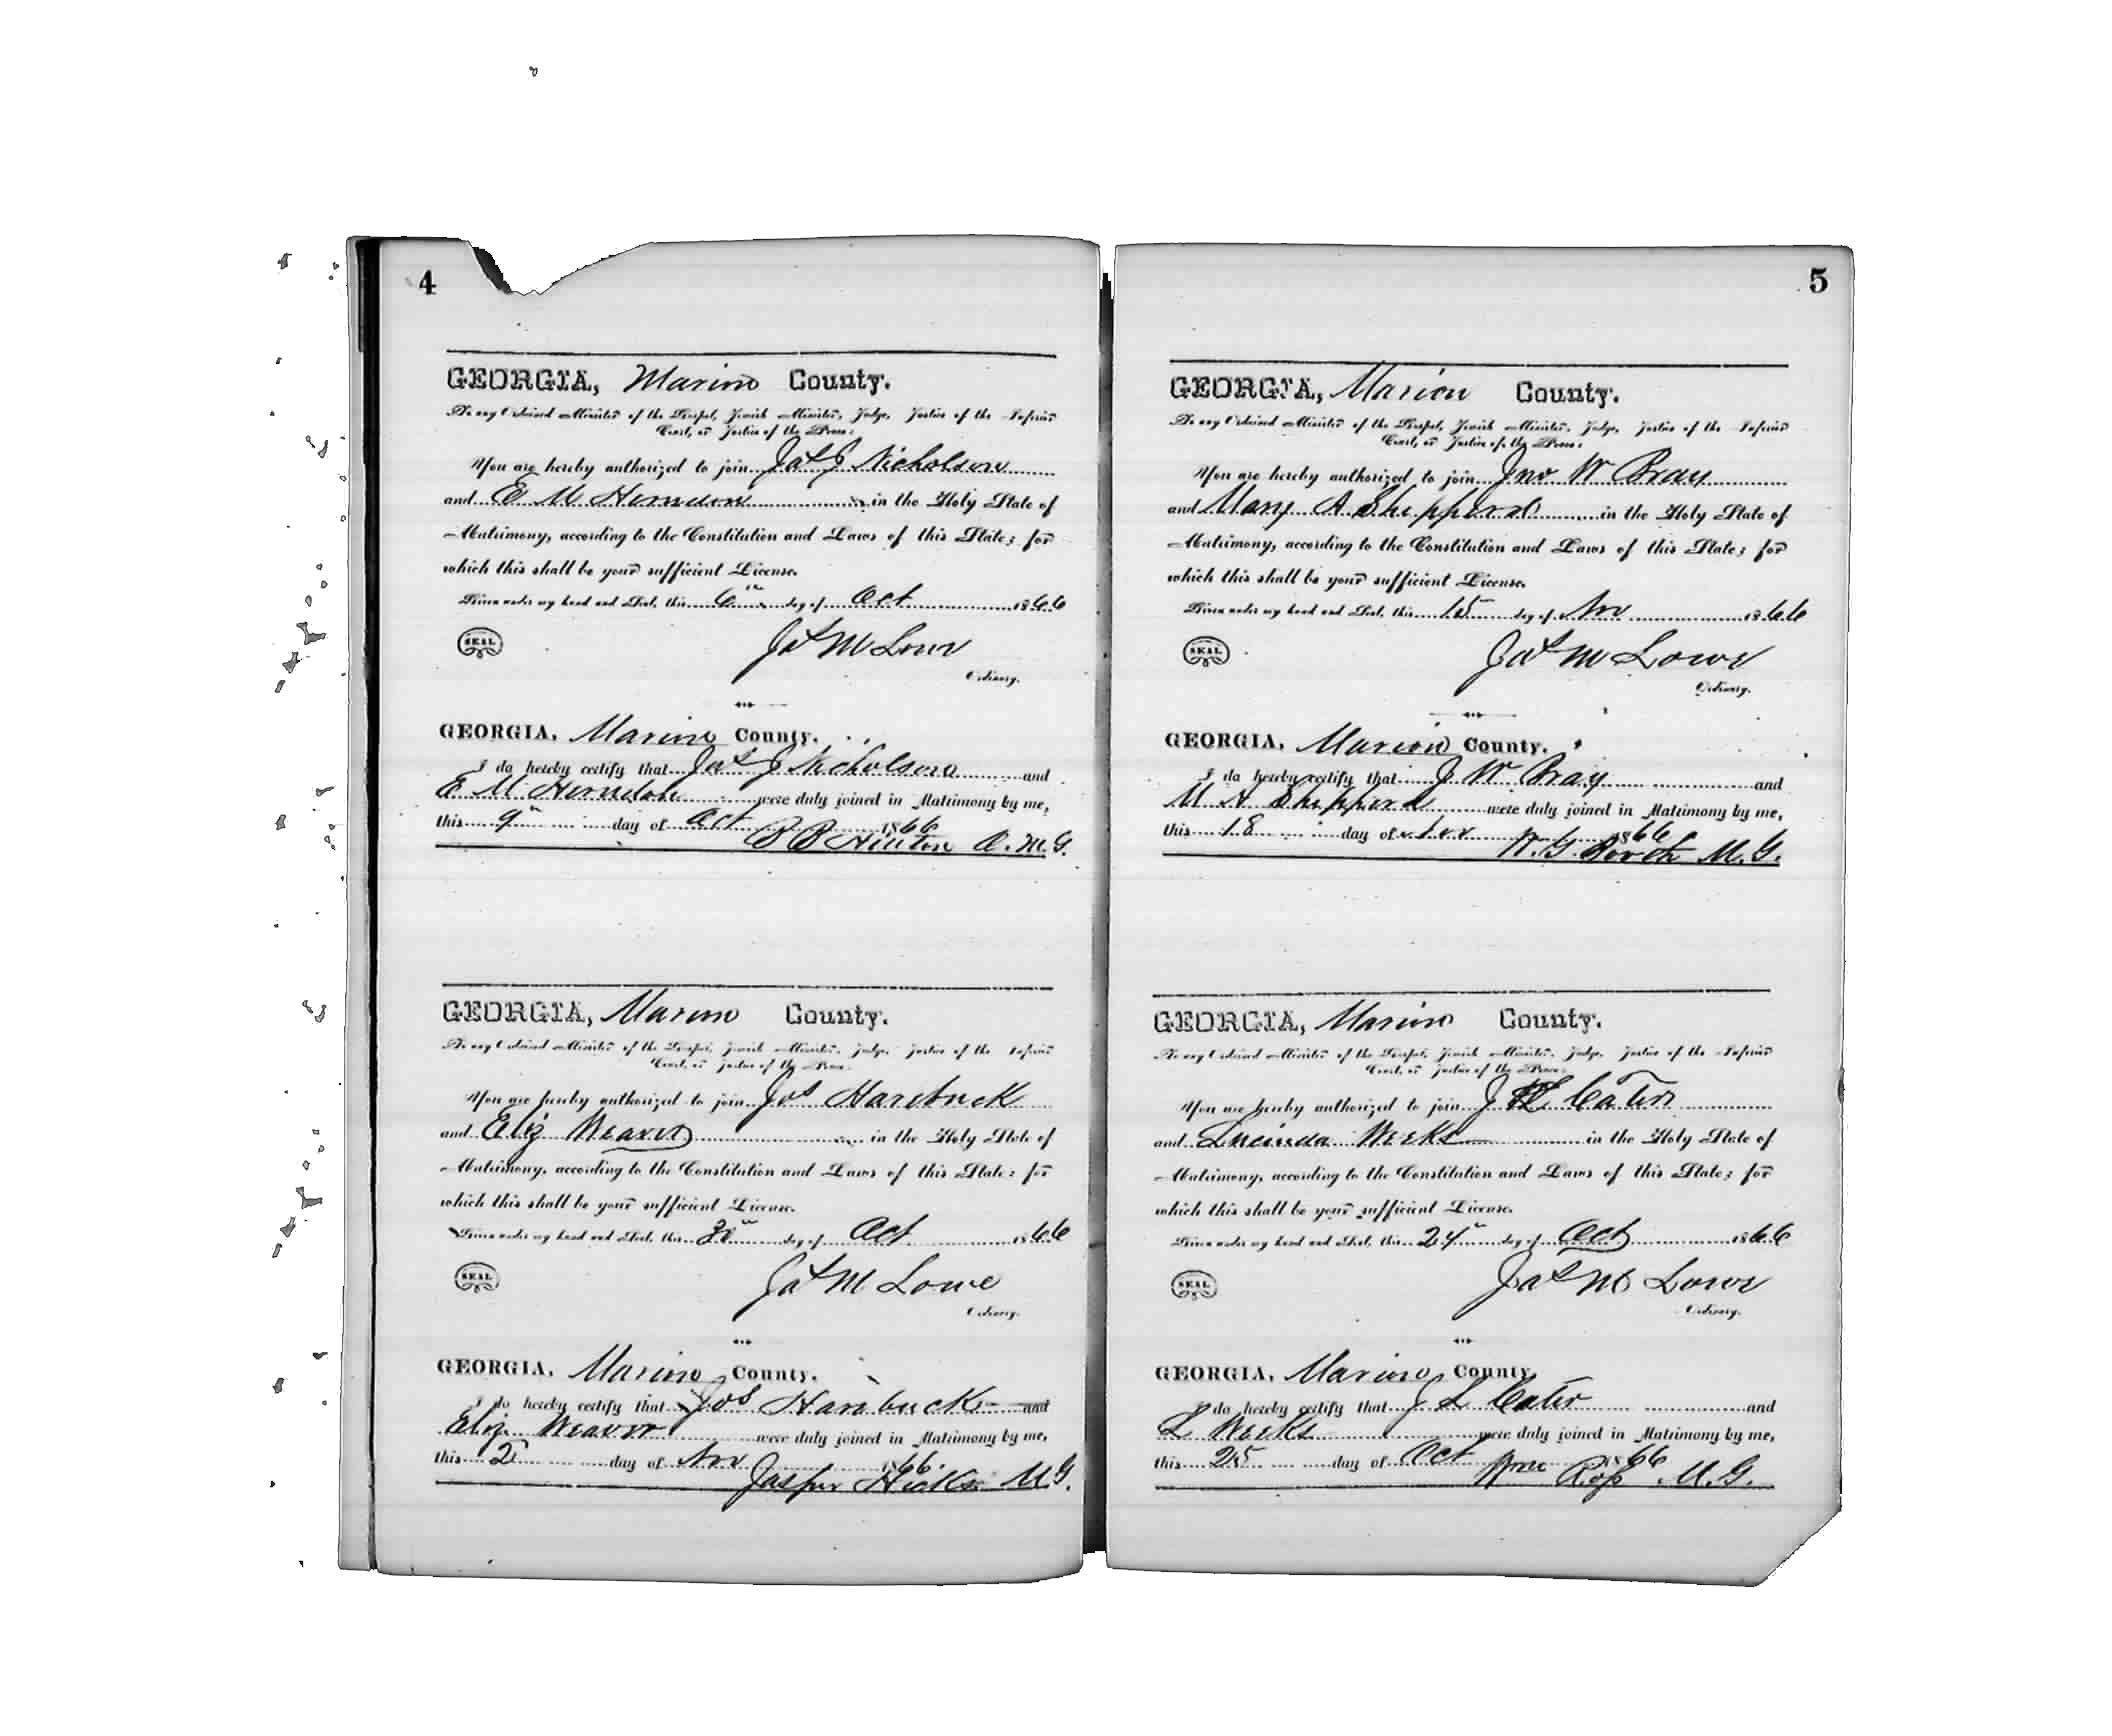 4
GEORGIA, Marion County.
To any Ordained Minister of the Gospel, Jewish Minister, Judge, Justice of the Inferior
Court, or Justice of the Peace:
You are hereby authorized to join Jas J Nicholson
and E M Herndon in the Holy State of
Matrimony, according to the Constitution and Laws of this State; for
which this shall be your sufficient License.
Given under my hand and Seal, this 6th day of Oct 1866
SEAL
Jas M Lowe
Ordinary.
GEORGIA, Marion County.
I do hereby certify that Jas J Nicholson and
E M Herndon were duly joined in Matrimony by me,
this 9th day of Oct 1866
Hinton O. M. G.
GEORGIA, Marion County.
To any Ordained Minister of the Gospel, Jewish Minister, Judge, Justice of the Inferior
Court, or Justice of the Peace:
You are hereby authorized to join Jos Harebuck
and Eliz Weaver in the Holy State of
Matrimony, according to the Constitution and Laws of this State: for
which this shall be your sufficient License.
Given under my hand and Seal, this 30th day of Oct 1866
SEAL
Jas M Lowe
Ordinary.
GEORGIA, Marion County.
I do hereby certify that Jos Harebuck and
Eliz Weaver were duly joined in Matrimony by me,
this 2 day of Nov 1866
Jasper Hicks M.G.
5
GEORGIA, Marion County.
To any Ordained Minister of the Gospel, Jewish Minister, Judge, Justice of the Inferior
Court, or Justice of the Peace:
You are hereby authorized to join Jno W Bray
and Mary A Shepperd in the Holy State of
Matrimony, according to the Constitution and Laws of this State; for
which this shall be your sufficient License.
Given under my hand and Seal, this 15 day of Nov 1866
SEAL
Jas M Lowe
Ordinary.
GEORGIA, Marion County.
I do hereby certify that J W Bray and
M A Shepperd were duly joined in Matrimony by me,
this 18 day of Nov 1866
M. G.
GEORGIA, Marion County.
To any Ordained Minister of the Gospel, Jewish Minister, Judge, Justice of the Inferior
Court, or Justice of the Peace:
You are hereby authorized to join J L Cater
and Lucinda Weeks in the Holy State of
Matrimony, according to the Constitution and Laws of this State; for
which this shall be your sufficient License.
Given under my hand and Seal, this 24th day of Oct 1866
SEAL
Jas M Lowe
Ordinary.
GEORGIA, Marion County.
I do hereby certify that J L Cater and
L Weeks were duly joined in Matrimony by me,
this 25 day of Oct 1866
Wm Ross M. G.